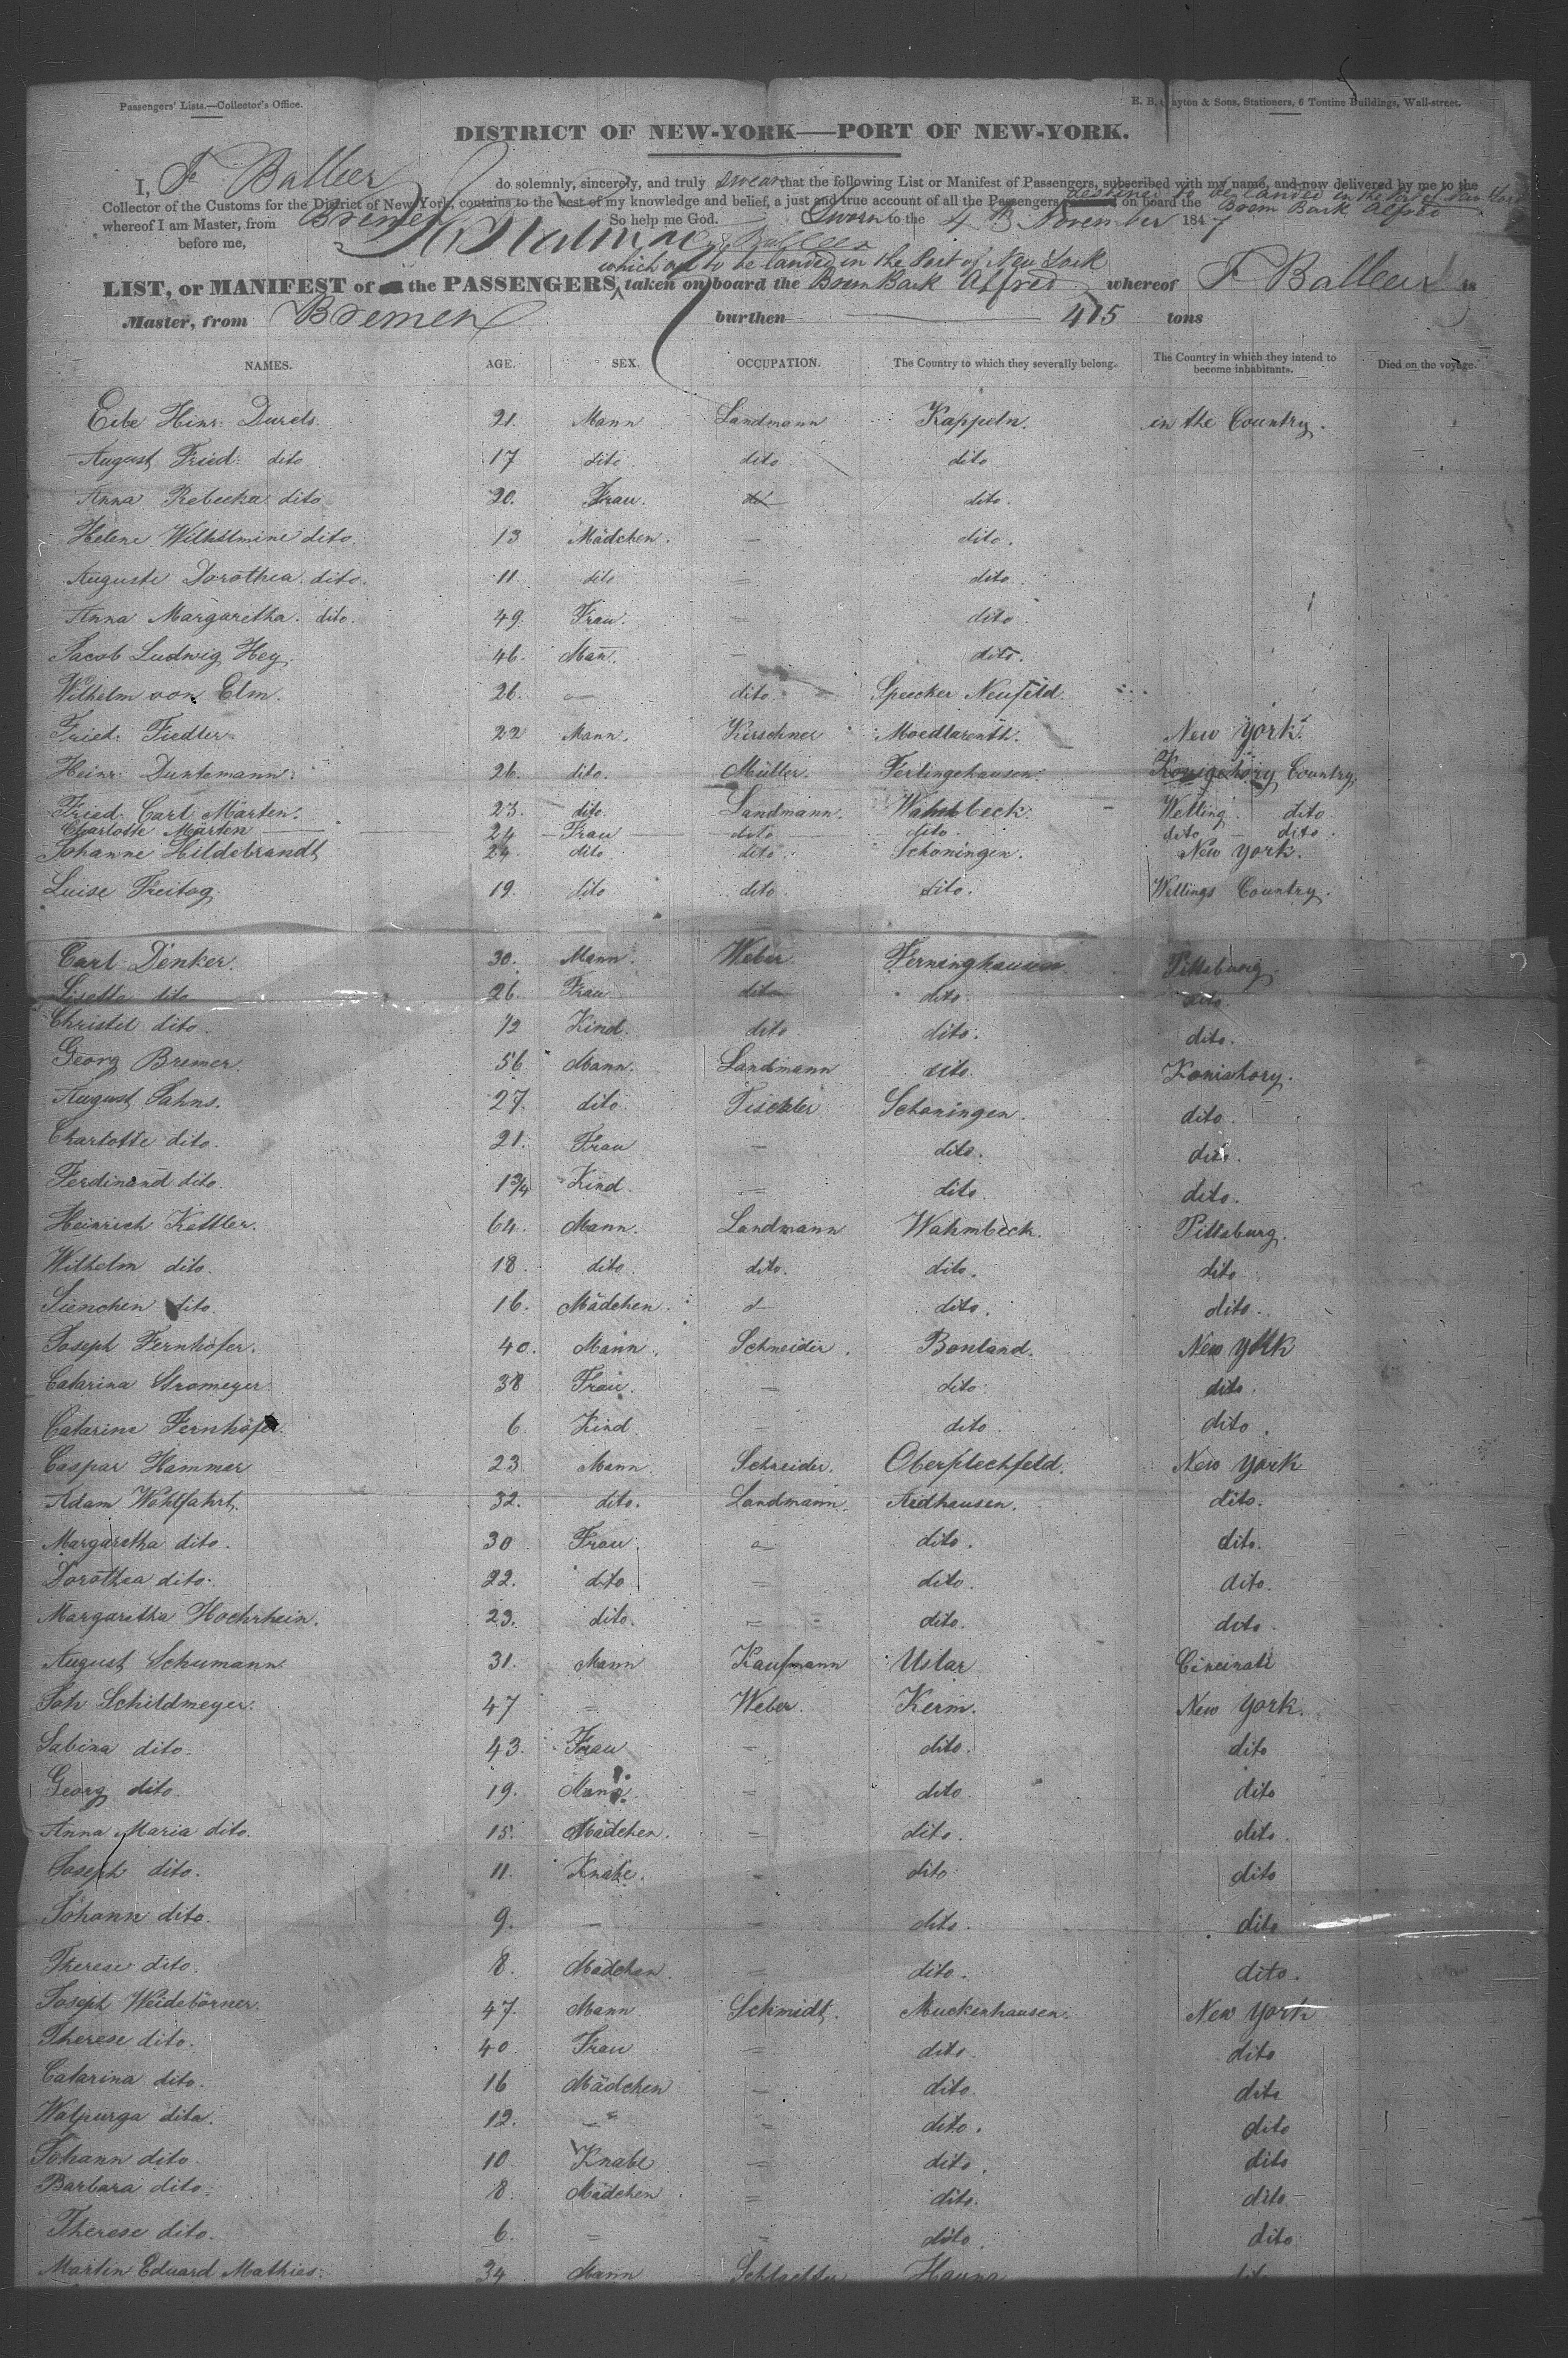 Passengers' Lists.—Collector's Office.
E. B. Clayton & Sons, Stationers, 6 Tontine Buildings, Wall-street.
DISTRICT OF NEW-YORK—PORT OF NEW-YORK.
I, F Balleer do solemnly, sincerely, and truly swear that the following List or Manifest of Passengers, subscribed with my name, and now delivered by me to the
destined to be landed in the Port of New York
Collector of the Customs for the District of New York, contains to the best of my knowledge and belief, a just and true account of all the Passengers on board the Brem Bark Alfred
whereof I am Master, from Bremen So help me God. Sworn to the 4 November 1847
before me, F Balleer
which are to be landed in the Port of New York
LIST, or MANIFEST of the PASSENGERS taken on board the Brem Bark Alfred whereof F Balleer is
Master, from Bremen burthen 415 tons
NAMES. AGE. SEX. OCCUPATION. The Country to which they severally belong. The Country in which they intend to become inhabitants. Died on the voyage.
Eibe Hinr: Durels. 21. Mann Landmann Kappeln. in the Country.
August Fried: dito 17 dito dito dito
Anna Rebecka dito 20. Frau. dito.
Helene Wilhelmine dito. 13 Mädchen. — dito.
Auguste Dorothea dito. 11. dito = dito
Anna Margaretha. dito. 49. Frau. = dito
Jacob Ludwig Hey. 46. Man. — dito.
Wilhelm von Elm. 26. — dito. Specker Neufeld
Fried: Fiedler 22 Mann. Kirschner Moedlareuth. New York.
Heinr: Duntemann 26. dito. Müller. Fertingehausen. Country.
Fried. Carl Märten. 23. dito. Landmann. Wahmbeck. Welling dito
Charlotte Märten 24 Frau dito dito dito dito
Johanne Hildebrandt 24. dito. dito. Schoningen. New York.
Luise Freitog 19. dito dito dito. Wellings Country.
Carl Denker. 30. Mann. Weber. Ferninghausen Pittsburg
Lisette dito 26. Frau dito dito dito.
Christel dito. 1/2 Kind. dito dito. dito.
Georg Bremer. 56 Mann. Landmann dito. Konishory.
August Jahns. 27. dito Tischler Schoningen. dito.
Charlotte dito. 21. Frau — dito. dito.
Ferdinand dito. 1 3/4 Kind. = dito. dito.
Heinrich Kettler. 64. Mann. Landmann Wahmbeck. Pittsburg.
Wilhelm dito. 18. dito dito. dito. dito
Lienchen dito. 16. Mädchen. d— dito. dito.
Joseph Fernhöfer. 40. Mann. Schneider. Bonland. New York
Catarina Stromeyer. 38 Frau. — dito. dito.
Catarine Fernhöfer. 6 Kind. dito dito.
Caspar Hammer 23 Mann. Schneider. Oberflechfeld. New York
Adam Wohlfahrt. 32. dito. Landmann. Aidhausen. dito.
Margaretha dito. 30 Frau. — dito. dito.
Dorothea dito. 22. dito = dito. dito.
Margaretha Hochrhein. 23. dito. = = dito. dito
August Schumann 31. Mann Kaufmann Uslar Cincinati
Joh Schildmeyer. 47 = Weber. Kerm. New York.
Sabina dito. 43. Frau — dito. dito
Georg dito. 19. Mann. = dito dito
Anna Maria dito. 15. Mädchen. = dito. dito
Joseph dito. 11. Knabe. — dito dito
Johann dito. 9. — — dito. dito
Therese dito. 8. Mädchen. = dito. dito.
Joseph Weidebörner. 47. Mann Schmidt. Muckenhausen. New York
Therese dito. 40. Frau = dito. dito
Catarina dito. 16 Mädchen — dito. dito
Walpurga dito. 12. — = dito. dito
Johann dito. 10 Knabe = dito. dito
Barbara dito. 8. Mädchen. = dito. dito
Therese dito. 6. = = dito. dito
Martin Eduard Mathies. 34 Mann Schlachter